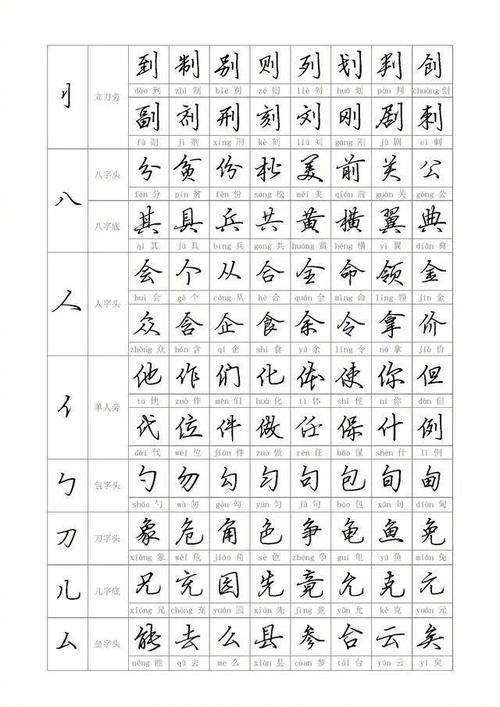 刂 立刀旁
到 制 别 则 列 划 判 创
dào 到 zhì 制 bié 别 zé 则 liè 列 huá 划 pàn 判 chuàng 创
副 剂 刑 刻 刘 刚 剧 刺
fù 副 jì 剂 xíng 刑 kè 刻 liú 刘 gāng 刚 jù 剧 cì 刺
八 八字头
分 贫 份 松 美 前 关 公
fēn 分 pín 贫 fèn 份 sōng 松 měi 美 qián 前 guān 关 gōng 公
八字底
其 具 兵 共 黄 横 翼 典
qí 其 jù 具 bīng 兵 gòng 共 huáng 黄 héng 横 yì 翼 diǎn 典
人 人字头
会 个 从 合 全 命 领 金
huì 会 gè 个 cóng 从 hé 合 quán 全 mìng 命 lǐng 领 jīn 金
众 含 企 食 余 令 拿 价
zhòng 众 hán 含 qǐ 企 shí 食 yú 余 lìng 令 ná 拿 jià 价
亻 单人旁
他 作 们 化 体 使 你 但
tā 他 zuò 作 mén 们 huà 化 tǐ 体 shǐ 使 nǐ 你 dàn 但
代 位 件 做 任 保 什 例
dài 代 wèi 位 jiàn 件 zuò 做 rèn 任 bǎo 保 shén 什 lì 例
勹 包字头
勺 勿 勾 匀 句 包 旬 甸
sháo 勺 wù 勿 gōu 勾 yún 匀 jù 句 bāo 包 xún 旬 diàn 甸
刀 刀字头
象 危 角 色 争 龟 鱼 免
xiàng 象 wēi 危 jiǎo 角 sè 色 zhēng 争 guī 龟 yú 鱼 miǎn 免
儿 儿字底
兄 充 园 先 竟 允 克 元
xiōng 兄 chōng 充 yuán 园 xiān 先 jìng 竟 yǔn 允 kè 克 yuán 元
厶 垒字头
能 去 么 县 参 台 云 矣
néng 能 qù 去 me 么 xiàn 县 cān 参 tái 台 yún 云 yǐ 矣